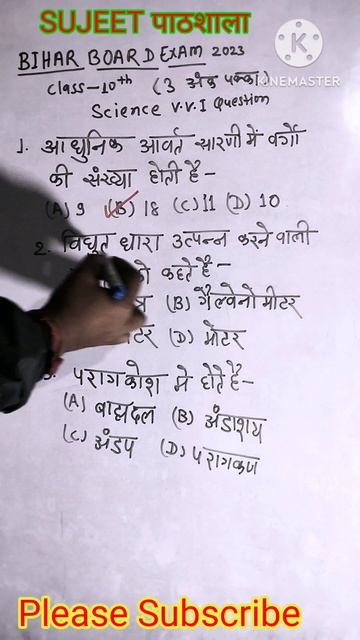 SUJEET पाठशाला
BIHAR BOARD EXAM 2023
KINEMASTER
Class-10th (3 अंक पक्का)
Science V.V.I Question
1. आधुनिक आवर्त सारणी में वर्गों
की संख्या होती है-
(A) 9 (B) 18 (C) 11 (D) 10
2. विद्युत धारा उत्पन्न करने वाली
को कहते है-
(B) गैल्वेनोमीटर
टर (D) मोटर
परागकोश मे होते है-
(A) बाह्यदल (B) अंडाशय
(C) अंडप (D) परागकण
Please Subscribe